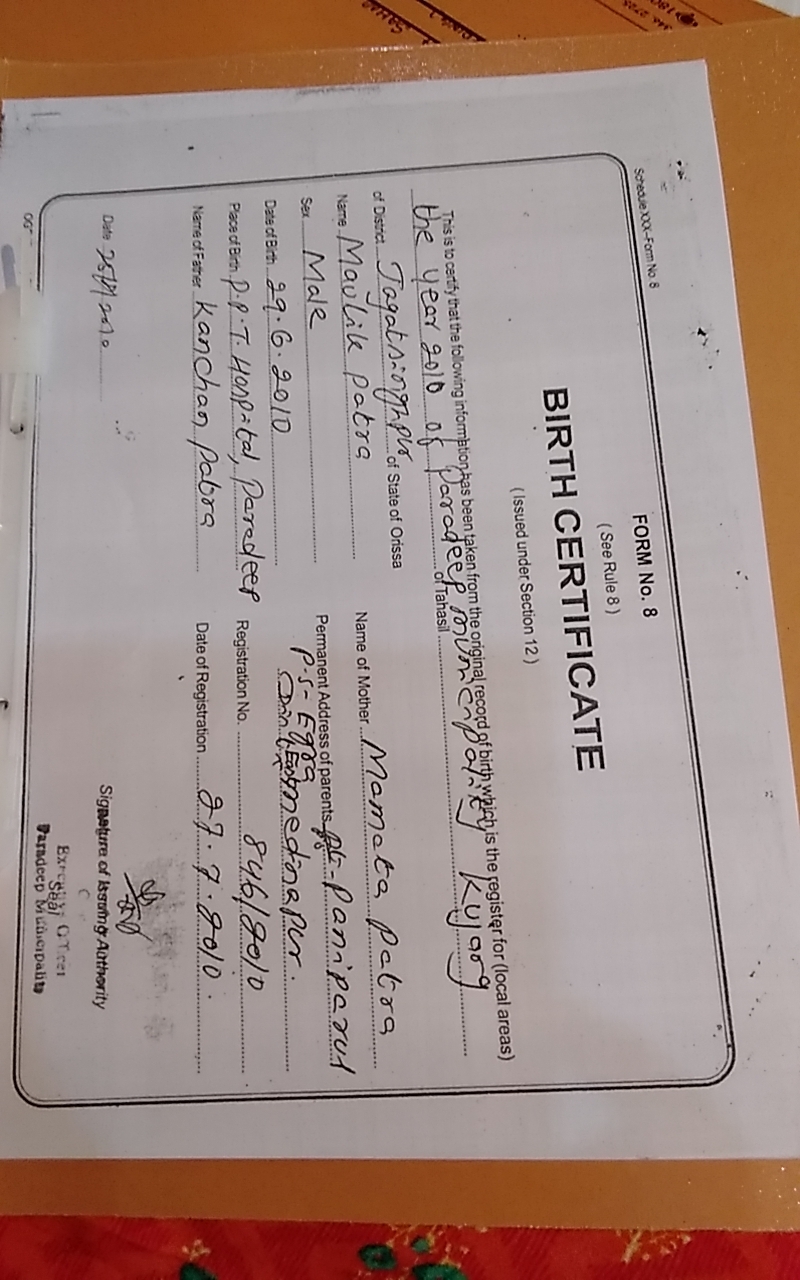 Schedule XXX-Form No. 8
FORM No. 8
( See Rule 8 )
BIRTH CERTIFICATE
( Issued under Section 12 )
This is to certify that the following information has been taken from the original record of birth which is the register for (local areas)
the year 2010 of Paradeep municipality of Tahasil Kujang
of District Jagatsinghpur of State of Orissa
Name Maulik Patra
Name of Mother Mamata Patra
Sex Male
Permanent Address of parents At- Paniparul
P.S- Egra
Date of Birth 29.6.2010
Dist- East medinapur.
Place of Birth P.P.T. Hospital, Paradeep
Registration No. 846/2010
Name of Father Kanchan Patra
Date of Registration 27.7.2010.
Date
Signature of Issuing Authority
Seal
Paradeep Municipality